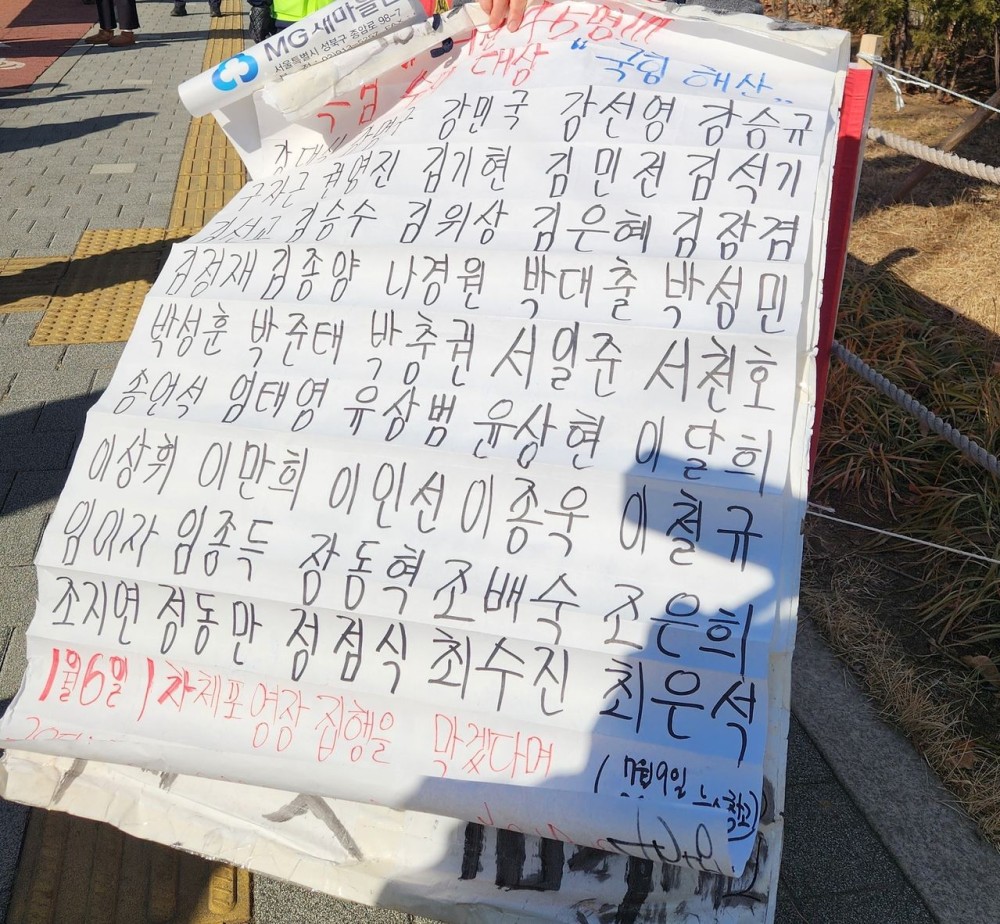 MG새마을
서울특별시 성북구 종암로 98-7
45명!!!
대상 "국힘 해산"
강민국 강선영 강승규
구자근 권영진 김기현 김민전 김석기
김선교 김승수 김위상 김은혜 김장겸
김정재 김종양 나경원 박대출 박성민
박성훈 박준태 박충권 서일준 서천호
송언석 엄태영 유상범 윤상현 이달희
이상휘 이만희 이인선 이종욱 이철규
임이자 임종득 장동혁 조배숙 조은희
조지연 정동만 정점식 최수진 최은석
1월6일 1차체포영장 집행을 막겠다며
(7월9일